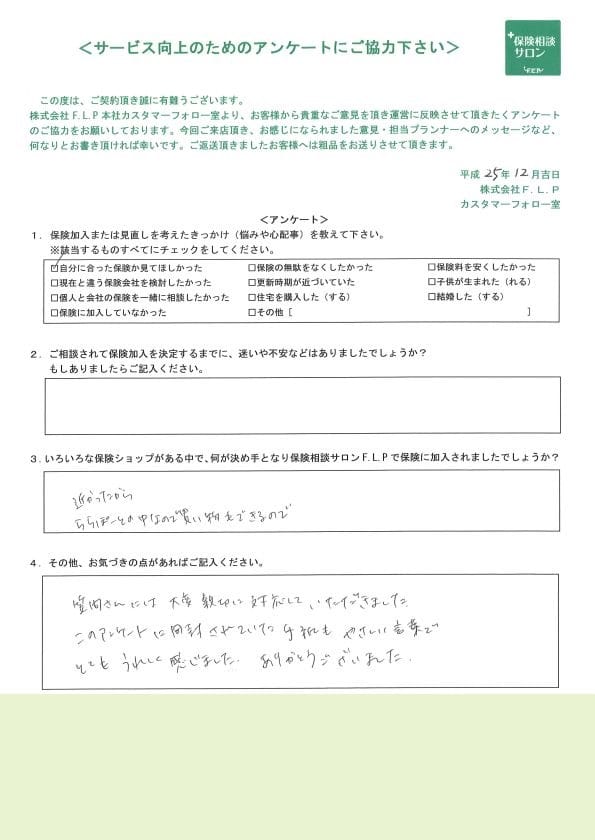 ＜サービス向上のためのアンケートにご協力下さい＞
保険相談
サロン
F.L.P
この度は、ご契約頂き誠に有難うございます。
株式会社Ｆ.Ｌ.Ｐ本社カスタマーフォロー室より、お客様から貴重なご意見を頂き運営に反映させて頂きたくアンケート
のご協力をお願いしております。今回ご来店頂き、お感じになられました意見・担当プランナーへのメッセージなど、
何なりとお書き頂ければ幸いです。ご返送頂きましたお客様へは粗品をお送りさせて頂きます。
平成 25年 12月吉日
株式会社Ｆ.Ｌ.Ｐ
カスタマーフォロー室
＜アンケート＞
１．保険加入または見直しを考えたきっかけ（悩みや心配事）を教えて下さい。
※該当するものすべてにチェックをしてください。
☑自分に合った保険か見てほしかった □保険の無駄をなくしたかった □保険料を安くしたかった
□現在と違う保険会社を検討したかった □更新時期が近づいていた □子供が生まれた（れる）
□個人と会社の保険を一緒に相談したかった □住宅を購入した（する） □結婚した（する）
□保険に加入していなかった □その他［ ］
２．ご相談されて保険加入を決定するまでに、迷いや不安などはありましたでしょうか？
もしありましたらご記入ください。
３.いろいろな保険ショップがある中で、何が決め手となり保険相談サロンF.L.Pで保険に加入されましたでしょうか？
近かったから
ららぽーとの中なので買い物もできるので
４．その他、お気づきの点があればご記入ください。
さんには 大変 親切に 対応して いただきました
このアンケートに 同封 されていた 手紙も やさしい 言葉で
とても うれしく 感じました. ありがとうございました.